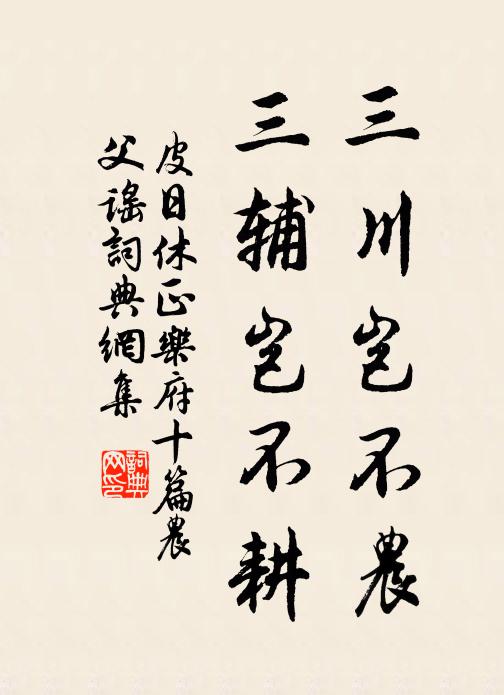 三川岂不農
三辅岂不耕
皮日休正樂府十篇農
父谣詞典網集
詞典
网印